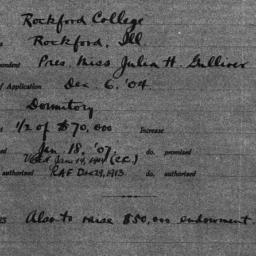 Rockford College
Rockford, Ill.
Pres. Miss Julia H. Gulliver
of Application Dec. 6, '04
Dormitory
1/2 of $70,000 Increase
Jan 18, '07. do. promised
Jan 14, (CC.)
authorized RAF Dec 29, 1913. do. authorized
Also to raise $50,000 endowment